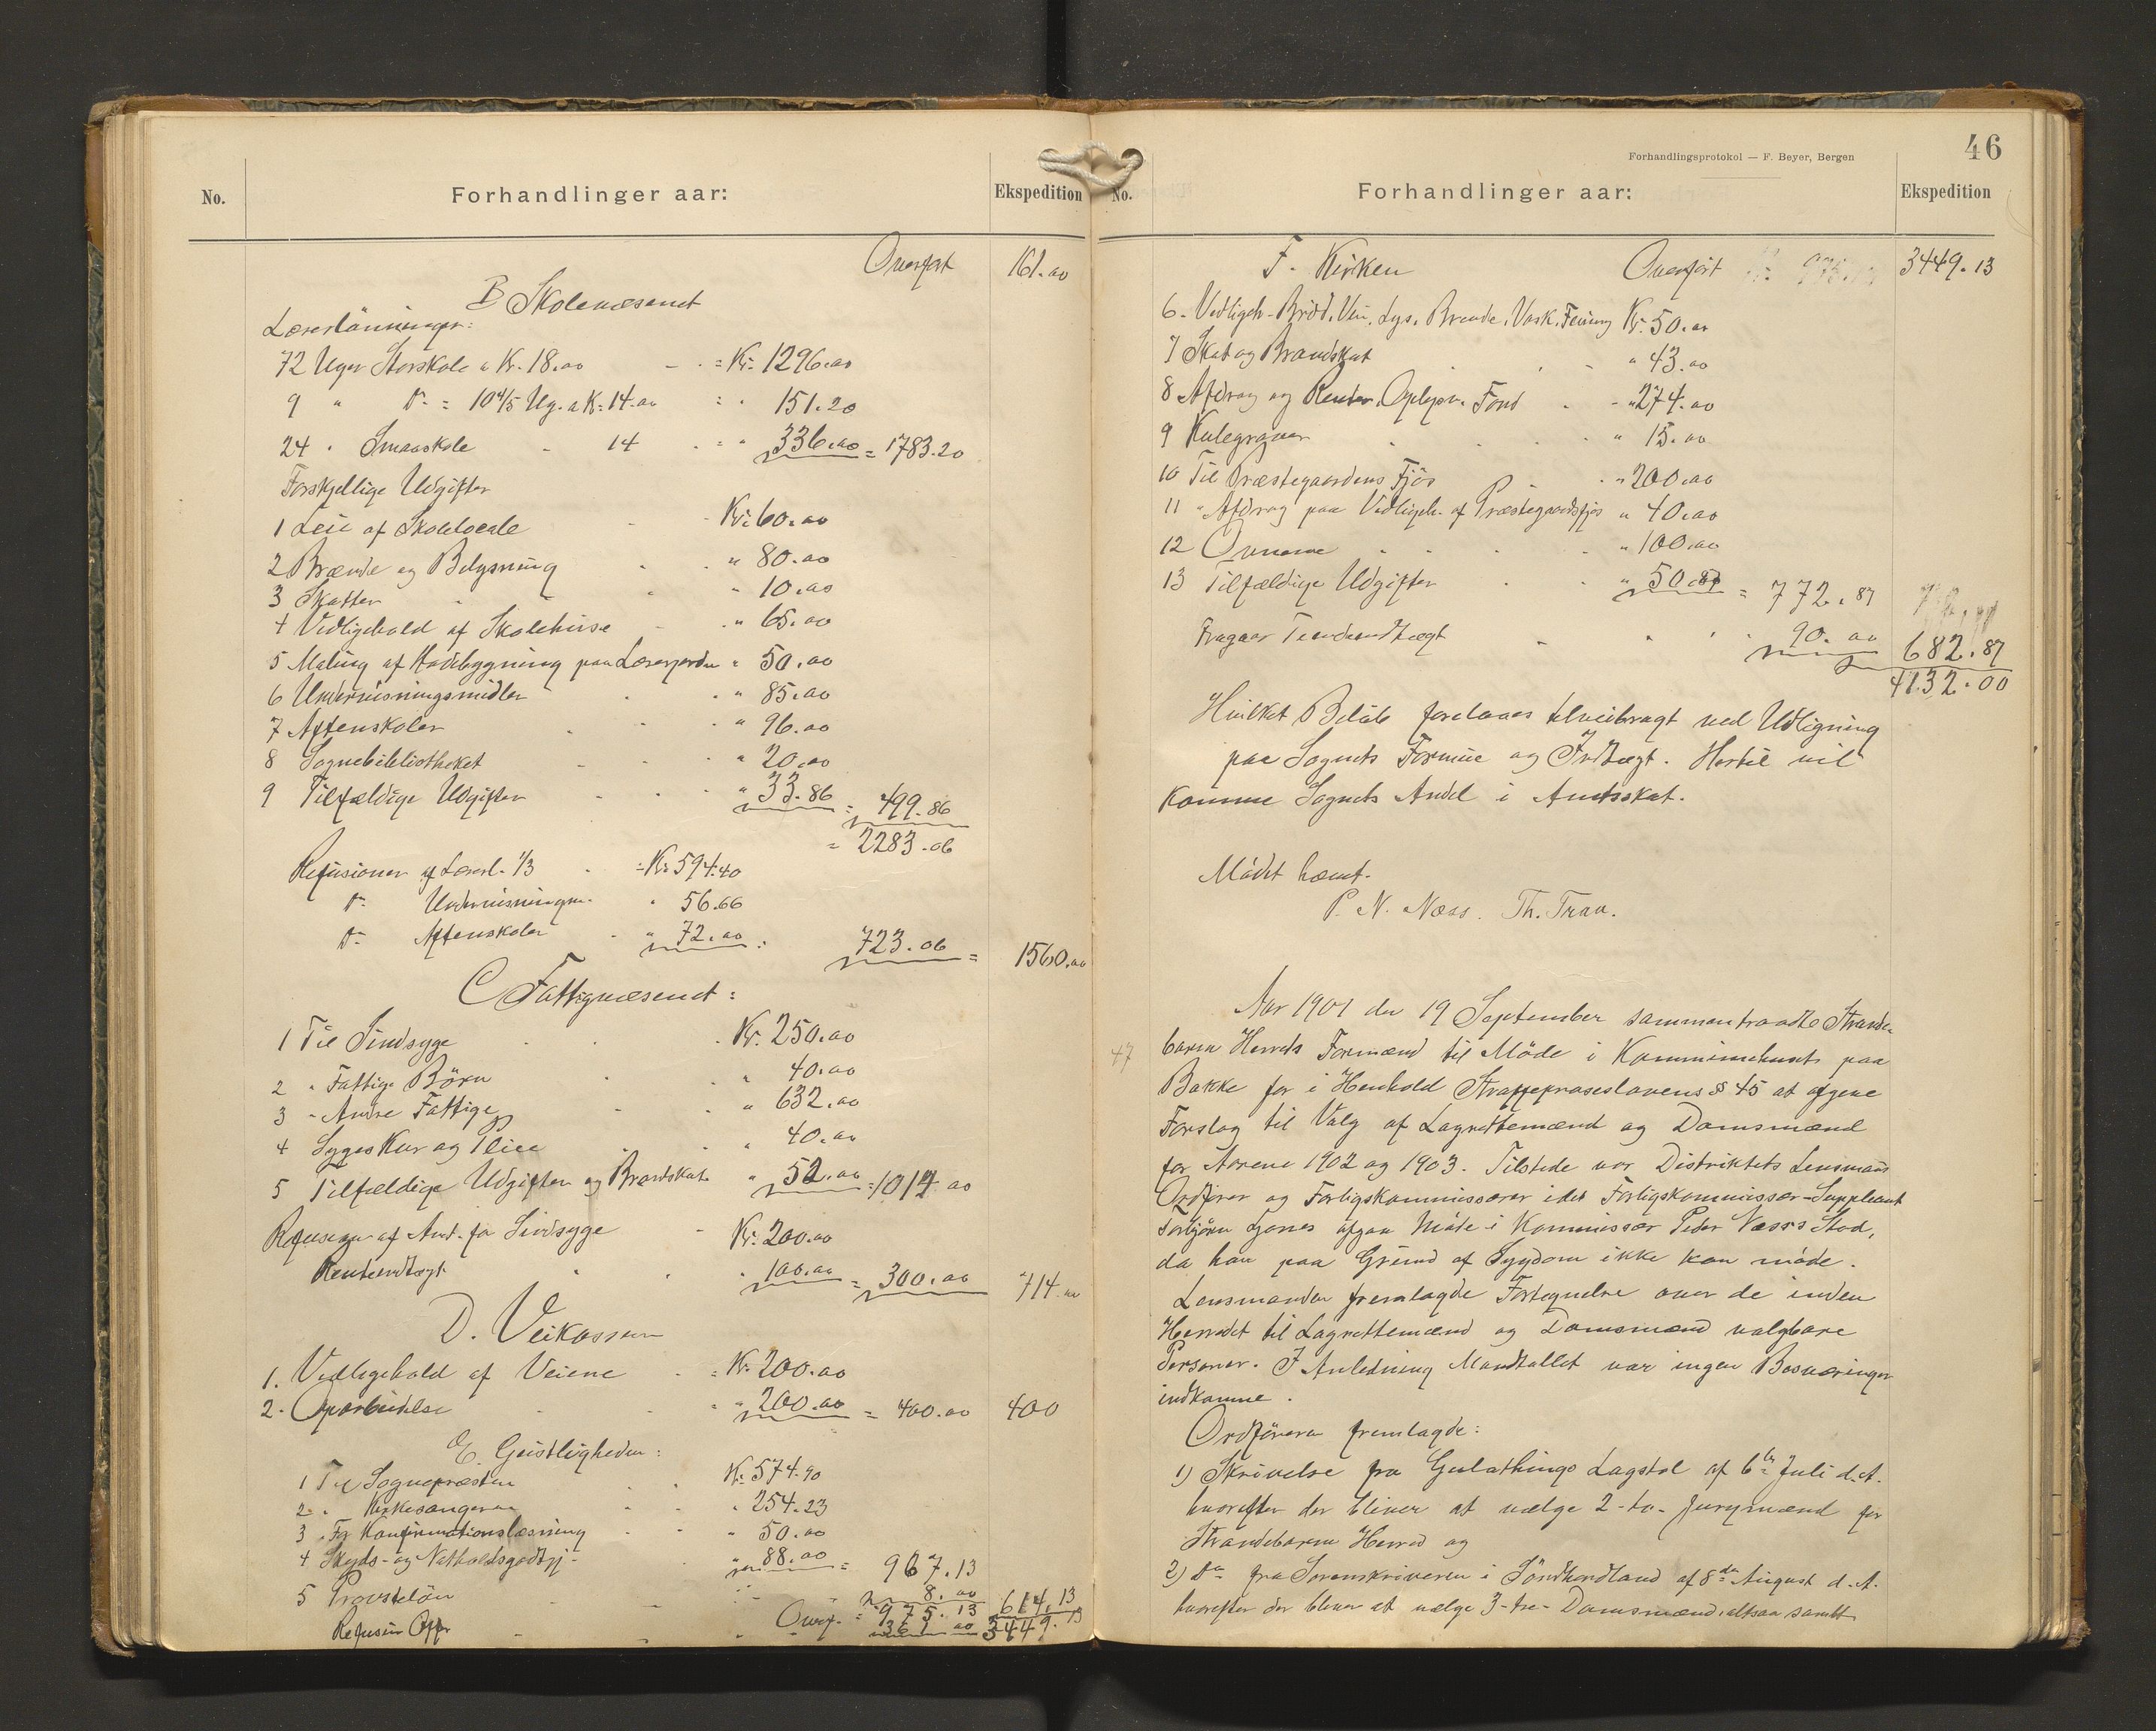 No.
Forhandlinger aar:
Ekspedition
Overført 161.00
B Skolevæsenet
Lærerlönninger:
72 Uger Storskole a Kr. 18.00 = Kr. 1296.00
9 " Do = 10 4/5 Ug. a Kr. 14.00 = " 151.20
24 " Smaaskole - 14 = " 336.00 = 1783.20
Forskjellige Udgifter
1 Leie af Skolelocale Kr. 60.00
2 Brænde og Belysning " 80.00
3 Skatter " 10.00
4 Vedligehold af Skolehuse " 65.00
5 Maling af Hovebygning paa Lærerjorden " 50.00
6 Undervisningsmidler " 85.00
7 Aftenskoler " 96.00
8 Sognebibliotheket " 20.00
9 Tilfældige Udgifter " 33.86 = 499.86
= 2283.06
Refusioner af Lærerl. 1/3 = Kr. 594.40
Do Undervisningm. " 56.66
Do Aftenskoler " 72.00 = 723.06 = 1560.00
C Fattigvæsenet:
1 Til Sindsyge Kr. 250.00
2 " Fattige Börn " 40.00
3 " Andre Fattige " 632.00
4 Syges Kur og Pleie " 40.00
5 Tilfældige Udgifter og Brandskat " 52.00 = 1014 00
Refusion af Amt. for Sindsyge Kr. 200.00
Renteindtægt " 100.00 = 300.00 714.00
D. Veikassen
1. Vedligehold af Veiene = Kr. 200.00
2. Oparbeidelse " 200.00 = 400.00 400
E. Geistligheden:
1 Til Sognepræsten Kr. 574.90
2 " Kirkesangeren " 254.23
3 For Konfirmationslæsning " 50.00
4 Skyds- og Natholdsgodtgj. " 88.00 = 967.13
5 Provstelön " 8.00
= 975.13 614.13
Refusion Offer Overf. 361 00 3449.13
Forhandlingsprotokol — F. Beyer, Bergen
46
No.
Forhandlinger aar:
Ekspedition
F. Kirken Overført 3449.13
6. Vedligeh. Bröd, Vin, Lys, Brænde, Vask, Feiing Kr. 50.00
7 Skat og Brandskat " 43.00
8 Afdrag og Renter, Oplysn. Fond " 274.00
9 Kulegraver " 15.00
10 Til Præstegaardens Fjös " 200.00
11 " Afdrag paa Vedligeh. af Præstegaardsfjös " 40.00
12 Ovnene " 100.00
13 Tilfældige Udgifter " 50.87 = 772.87
Fragaar Tiendeindtægt 90.00 682.87
4132.00
Hvilket Belöb forelaaes tilveibragt ved Udligning
paa Sognets Formue og Indtægt. Hertil vil
komme Sognets Andel i Amtsskat.
Mödet hævet.
P. N. Næss. Th. Traa.
Aar 1901 den 19 September sammentraadte Strande-
47 barm Herreds Formænd til Möde i Kommunehuset paa
Bakke for i Henhold Straffeproseslovens § 45 at afgive
Forslag til Valg af Lagrettemænd og Domsmænd
for Aarene 1902 og 1903. Tilstede var Distriktets Lensmand
Ordförer og Forligskommissærer idet Forligskommissær-Suppleant
Torbjörn Lones afgav Möde i Kommissær Peder Næss's Sted,
da han paa Grund af Sygdom ikke kan möde.
Lensmanden fremlagde Fortegnelse over de inden
Herredet til Lagrettemænd og Domsmænd valgbare
Personer. I Anledning Mandtallet var ingen Besværinger
indkomne.
Ordföreren fremlagde:
1) Skrivelse fra Gulathings Lagstol af 6te Juli d. A.
hvorefter der bliver at vælge 2-to- Jurymænd for
Strandebarm Herred og
2) Do fra Sorenskriveren i Söndhordland af 8de August d. A.
hvorefter der bliver at vælge 3-tre- Domsmænd, altsaa samlet